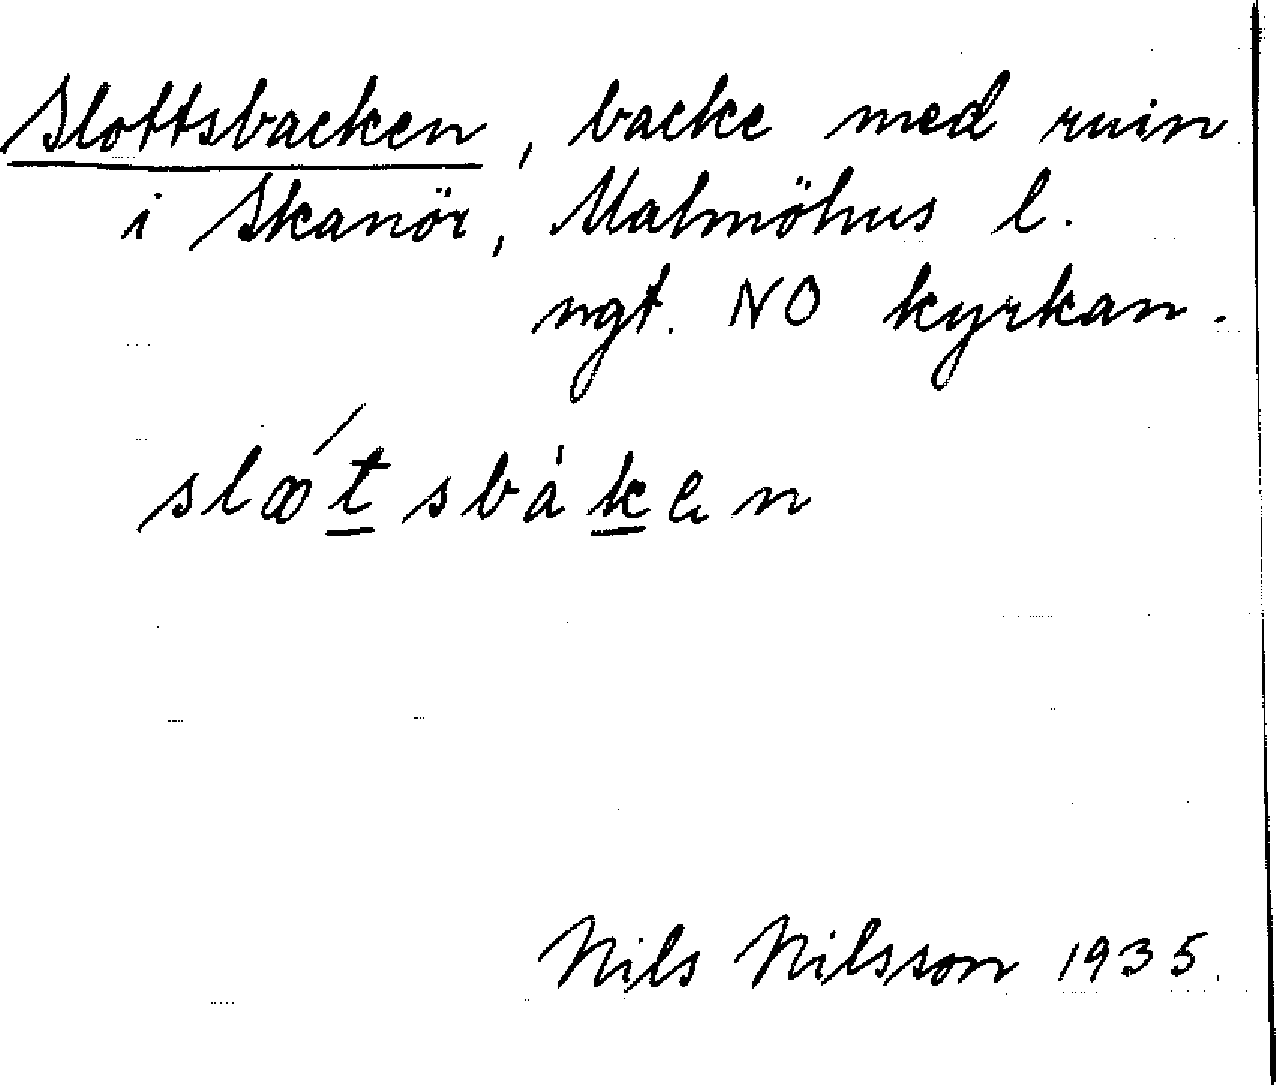 Slottsbacken, backe med ruin
i Skanör, Malmöhus l.
ngt. NO kyrkan.
slætsbàken
Nils Nilsson 1935.